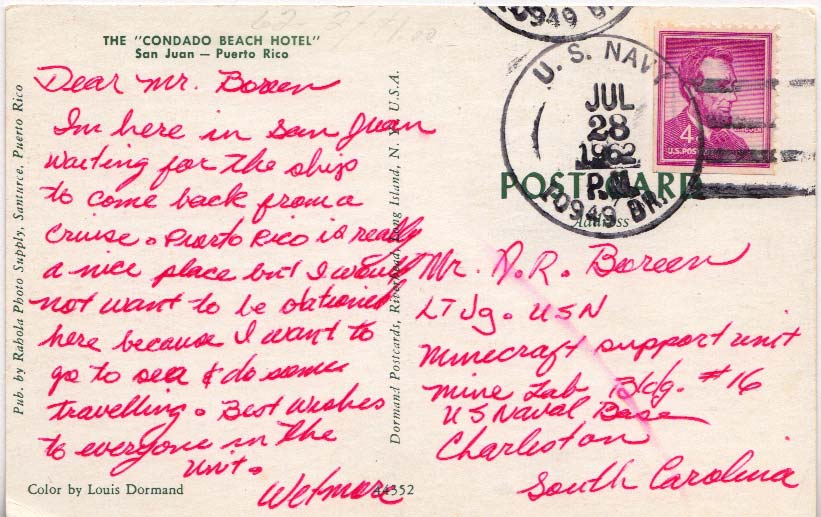 THE "CONDADO BEACH HOTEL"
San Juan — Puerto Rico
Dear Mr. Boreen
Im here in San Juan
waiting for the ship
to come back from a
cruise. Puerto Rico is really
a nice place but I would
not want to be stationed
here because I want to
go to sea & do some
travelling. Best Wishes
to everyone in the
Unit.
Wetmore
Color by Louis Dormand
44352
Pub. by Rahola Photo Supply, Santurce, Puerto Rico
Dormand Postcards, Riverhead, Long Island, N. Y. U.S.A.
U. S. NAVY
JUL
28
1962
P.M.
10949 BR.
10949 BR.
4¢
U.S. POSTAGE
POST CARD
Address
Mr. D. R. Boreen
LTJg. USN
Minecraft support unit
Mine Lab Bldg. #16
US Naval Base
Charleston
South Carolina